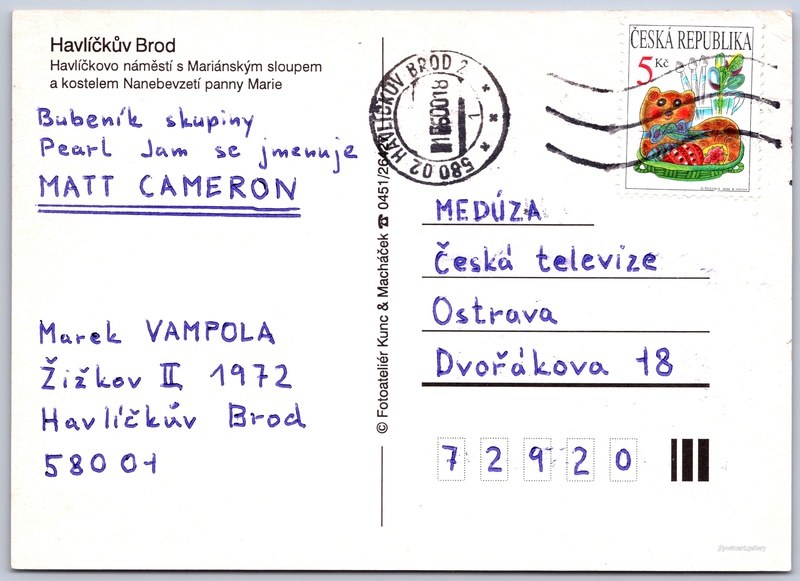 Havlíčkův Brod
Havlíčkovo náměstí s Mariánským sloupem
a kostelem Nanebevzetí panny Marie
Bubeník skupiny
Pearl Jam se jmenuje
MATT CAMERON
Marek VAMPOLA
Žižkov II 1972
Havlíčkův Brod
580 01
© Fotoateliér Kunc & Macháček ☎ 0451/26
580 02 HAVLÍČKŮV BROD 2
1
ČESKÁ REPUBLIKA
5 Kč
MEDÚZA
Česká televize
Ostrava
Dvořákova 18
7 2 9 2 0